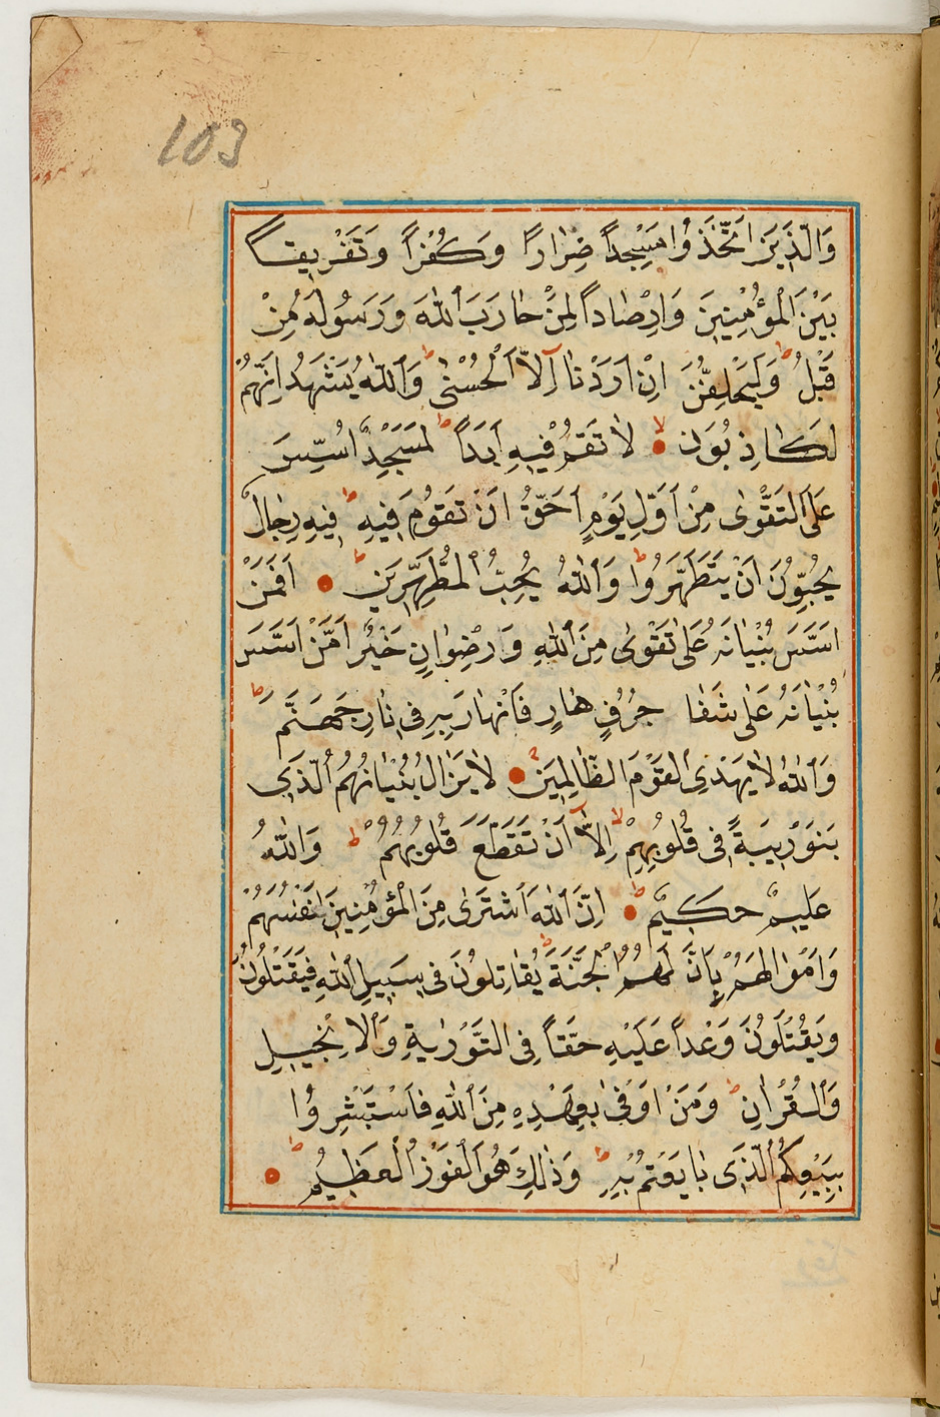 103
وَالَّذِينَ اتَّخَذُوا مَسْجِداً ضِرَاراً وَكُفْراً وَتَفْرِيقاً
بَيْنَ الْمُؤْمِنِينَ وَاِرْصَاداً لِمَنْ حَارَبَ اللّٰهَ وَرَسُولَهُ مِنْ
قَبْلُ ط وَلَيَحْلِفُنَّ اِنْ اَرَدْنَا اِلَّا الْحُسْنٰى ط وَاللّٰهُ يَشْهَدُ اِنَّهُمْ
لَكَاذِبُونَ لا لَا تَقُمْ فِيهِ اَبَداً ط لَمَسْجِدٌ اُسِّسَ
عَلَى التَّقْوٰى مِنْ اَوَّلِ يَوْمٍ اَحَقُّ اَنْ تَقُومَ فِيهِ ط فِيهِ رِجَالٌ
يُحِبُّونَ اَنْ يَتَطَهَّرُوا ط وَاللّٰهُ يُحِبُّ الْمُطَّهِّرِينَ ط اَفَمَنْ
اَسَّسَ بُنْيَانَهُ عَلٰى تَقْوٰى مِنَ اللّٰهِ وَرِضْوَانٍ خَيْرٌ اَمَّنْ اَسَّسَ
بُنْيَانَهُ عَلٰى شَفَا جُرُفٍ هَارٍ فَانْهَارَ بِهِ فِى نَارِ جَهَنَّمَ ط
وَاللّٰهُ لَا يَهْدِى الْقَوْمَ الظَّالِمِينَ لَا يَزَالُ بُنْيَانُهُمُ الَّذِى
بَنَوْا رِيبَةً فِى قُلُوبِهِمْ لا اِلَّا اَنْ تَقَطَّعَ قُلُوبُهُمْ ط وَاللّٰهُ
عَلِيمٌ حَكِيمٌ ط اِنَّ اللّٰهَ اشْتَرٰى مِنَ الْمُؤْمِنِينَ اَنْفُسَهُمْ
وَاَمْوَالَهُمْ بِاَنَّ لَهُمُ الْجَنَّةَ ط يُقَاتِلُونَ فِى سَبِيلِ اللّٰهِ فَيَقْتُلُونَ
وَيُقْتَلُونَ وَعْداً عَلَيْهِ حَقّاً فِى التَّوْرٰيةِ وَالْاِنْجِيلِ
وَالْقُرْاٰنِ ط وَمَنْ اَوْفٰى بِعَهْدِهِ مِنَ اللّٰهِ فَاسْتَبْشِرُوا
بِبَيْعِكُمُ الَّذِى بَايَعْتُمْ بِهِ ط وَذٰلِكَ هُوَ الْفَوْزُ الْعَظِيمُ ط